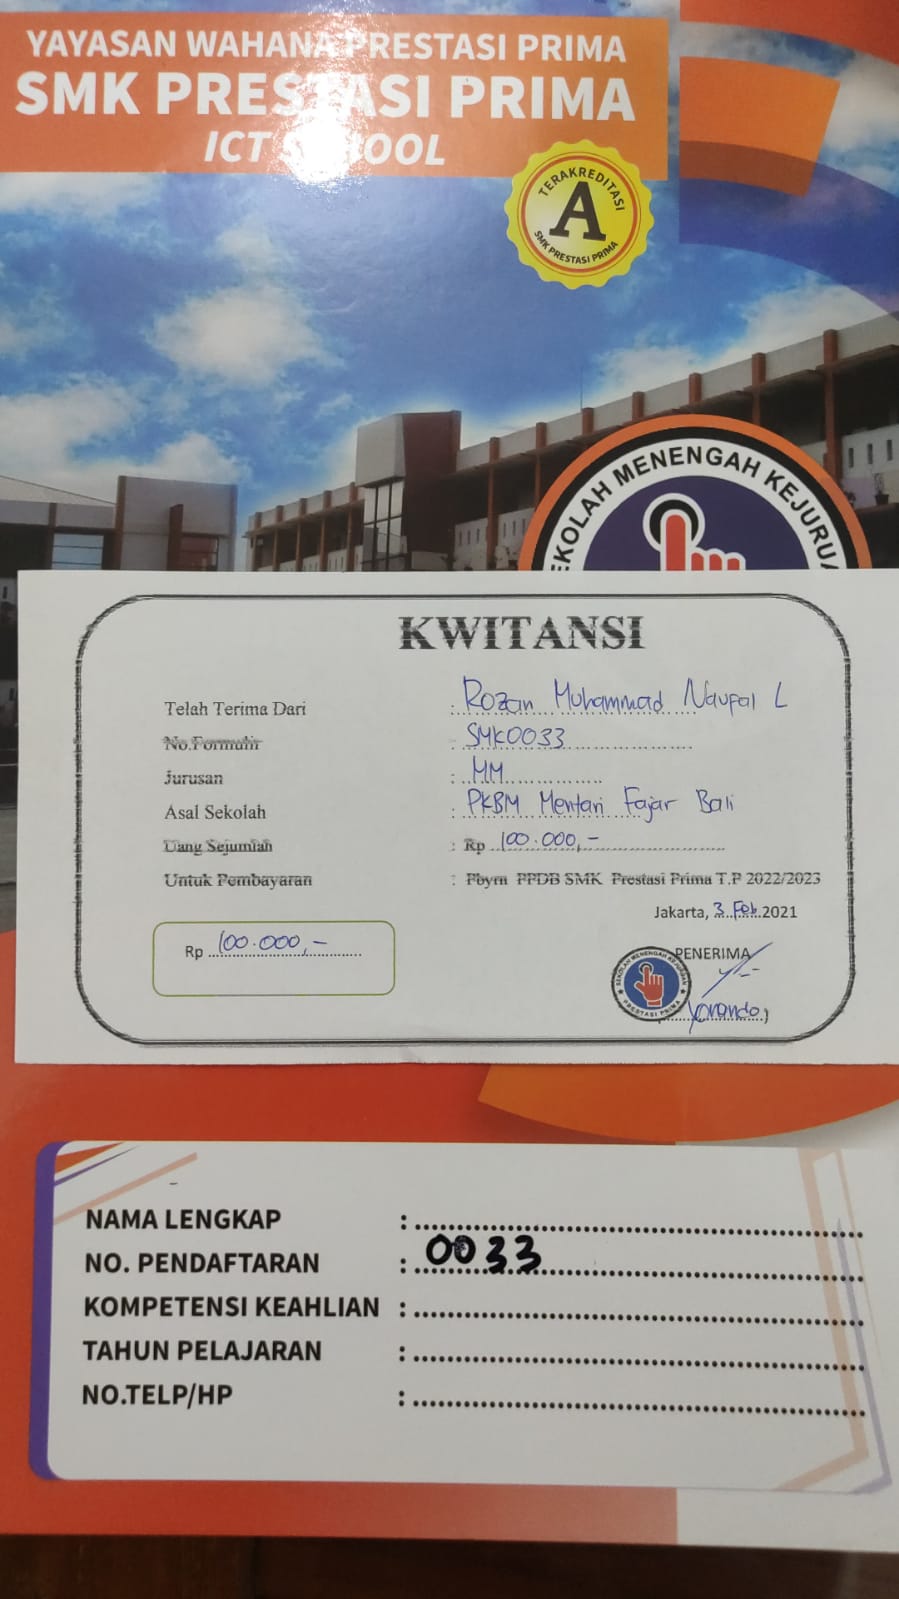 YAYASAN WAHANA PRESTASI PRIMA
SMK PRESTASI PRIMA
ICT SCHOOL
TERAKREDITASI
A
SMK PRESTASI PRIMA
SEKOLAH MENENGAH KEJURUA
KWITANSI
Telah Terima Dari : Rozan Muhammad Naufal L
No.Formulir : SMK0033
Jurusan : MM
Asal Sekolah : PKBM Mentari Fajar Bali
Uang Sejumlah : Rp 100.000,-
Untuk Pembayaran : Pbyrn PPDB SMK Prestasi Prima T.P 2022/2023
Jakarta, 3 Feb 2021
Rp 100.000,-
PENERIMA
SEKOLAH MENENGAH KEJURUAN
PRESTASI PRIMA
NAMA LENGKAP :
NO. PENDAFTARAN : 0033
KOMPETENSI KEAHLIAN :
TAHUN PELAJARAN :
NO.TELP/HP :